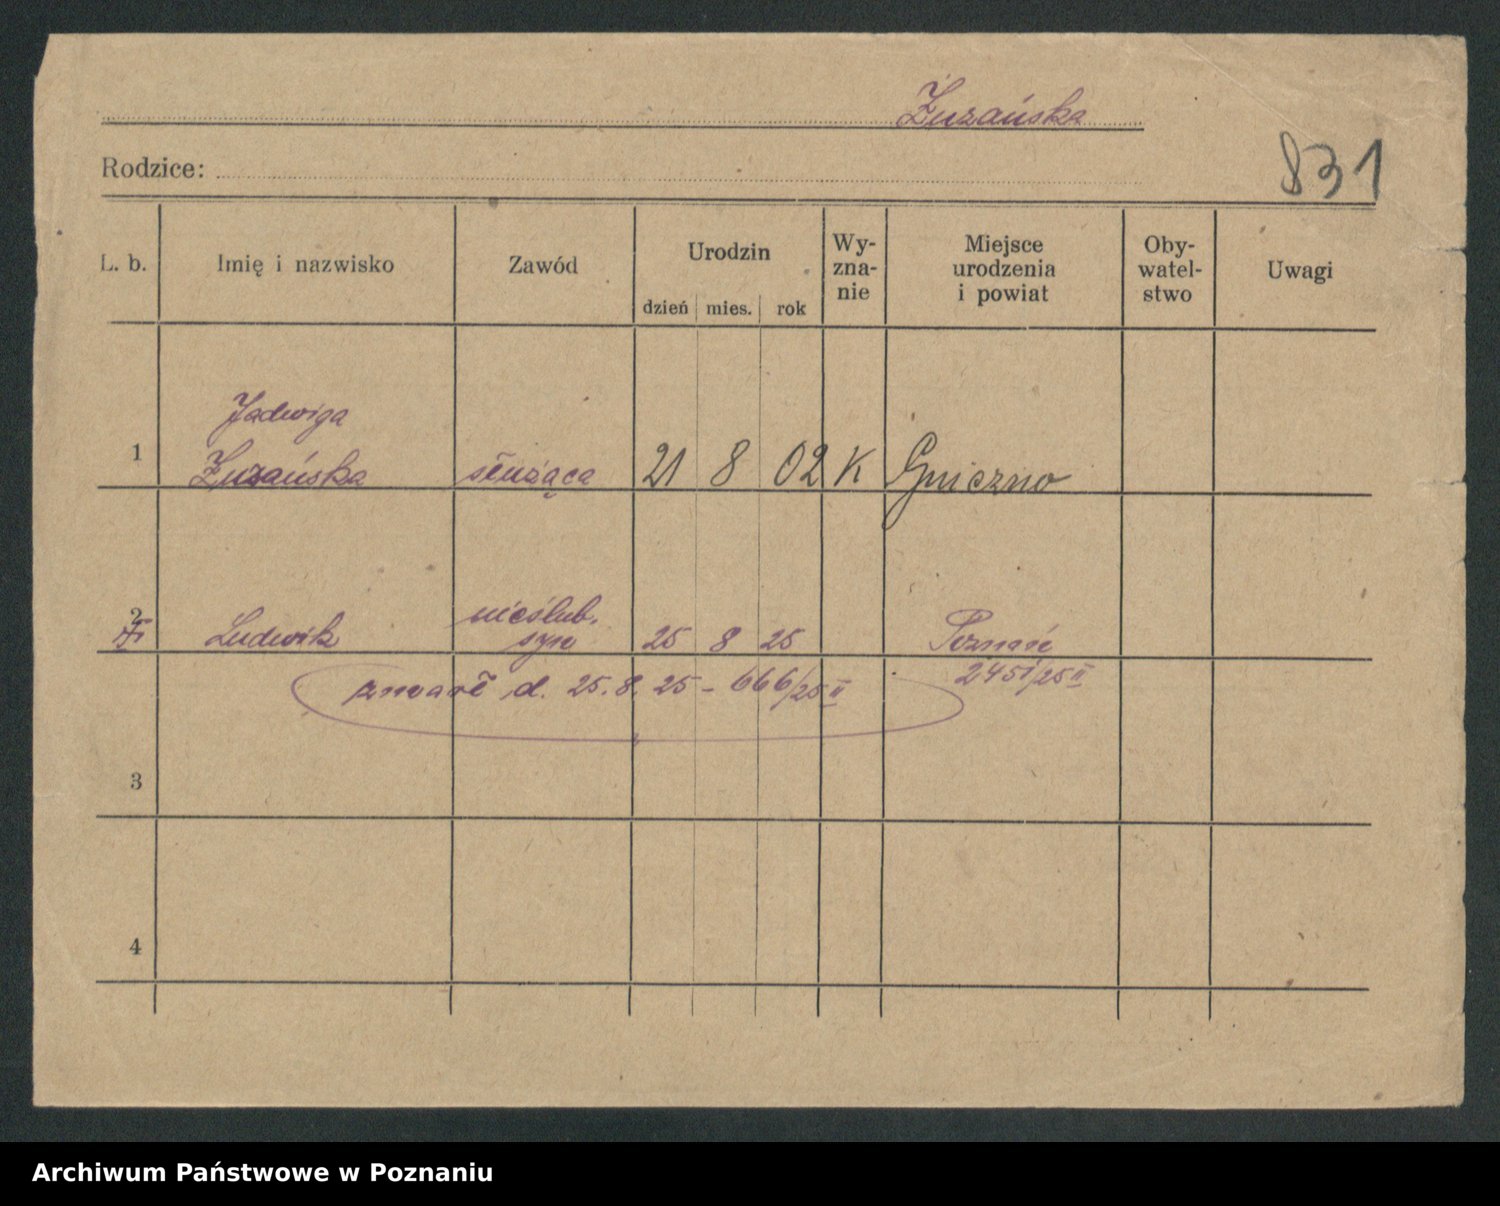 Żuzańska
831
Rodzice:
L. b.
Imię i nazwisko
Zawód
Urodzin
dzień mies. rok
Wy-
zna-
nie
Miejsce
urodzenia
i powiat
Oby-
watel-
stwo
Uwagi
Jadwiga
1 Żuzańska służąca 21 8 02 K Gniezno
nieślub.
2 Ludwik syn 25 8 25 Poznań
2451/25 II
zmarł d. 25. 8. 25 - 666/25 II
3
4
Archiwum Państwowe w Poznaniu